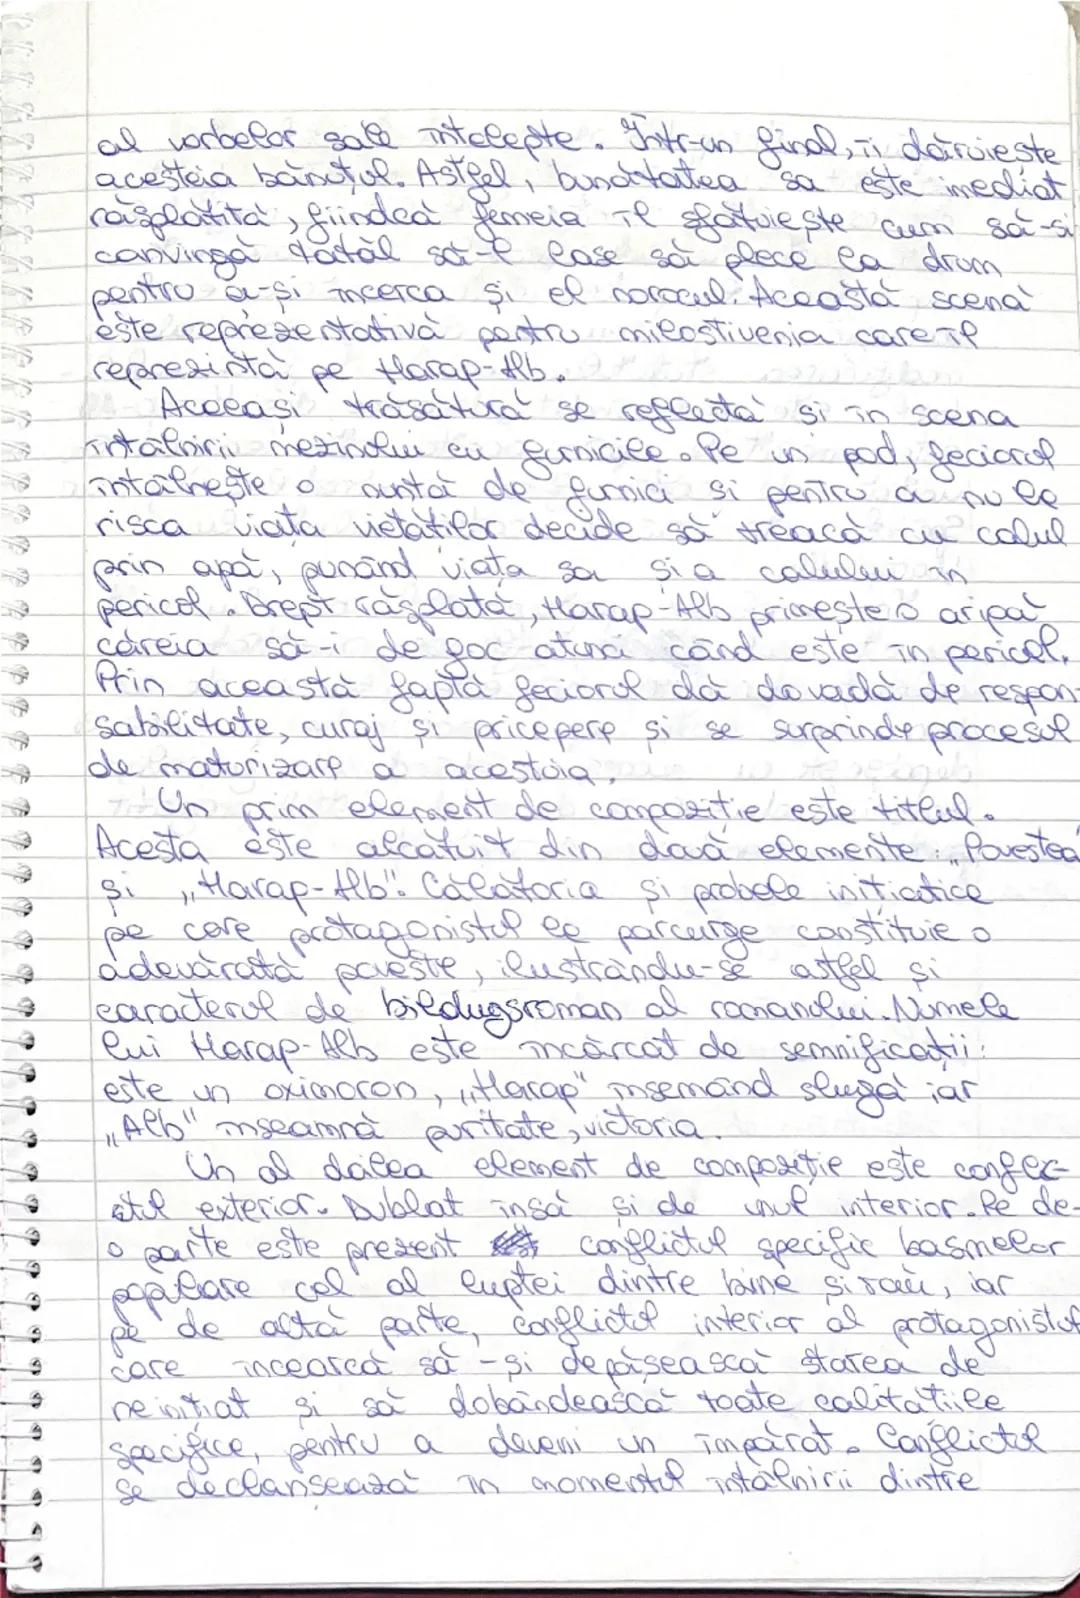 al vorbelor sale întelepte. Într-un final, îi dăruiește
acesteia bănuțul. Astfel, bunătatea sa este imediat
răsplătită, fiindcă femeia îl sfătuiește cum să-si
convingă tatăl să-l lase să plece la drum
pentru a-și încerca și el norocul. Această scenă
este reprezentativă pentru milostivenia care îl
reprezintă pe Harap-Alb.
Aceeași trăsătură se reflectă si în scena
întâlnirii mezinului cu furnicile. Pe un pod, feciorul
întâlnește o nuntă de furnici si pentru a nu le
risca viața vietăților decide să treacă cu calul
prin apă, punând viața sa și a calului în
pericol. Drept răsplată, Harap-Alb primește o aripă
căreia să-i de foc atunci când este în pericol.
Prin această faptă feciorul dă dovadă de respon-
sabilitate, curaj și pricepere și se surprinde procesul
de maturizare a acestuia.
Un prim element de compoziție este titlul.
Acesta este alcătuit din două elemente: „Povestea"
și „Harap-Alb". Călătoria și probele inițiatice
pe care protagonistul le parcurge constituie o
adevărată poveste, ilustrându-se astfel și
caracterul de bildugsroman al romanului. Numele
lui Harap-Alb este încărcat de semnificații:
este un oximoron, „Harap" însemând slugă iar
„Alb" înseamnă puritate, victoria.
Un al doilea element de compoziție este conflic-
tul exterior. Dublat însă și de unul interior. Pe de-
o parte este prezent conflictul specific basmelor
populare cel al luptei dintre bine și rău, iar
pe de altă parte, conflictul interior al protagonistul
care încearcă să-și depășească starea de
neinițiat și să dobândească toate calitățiile
specifice, pentru a deveni un împărat. Conflictul
se declansează în momentul întâlnirii dintre